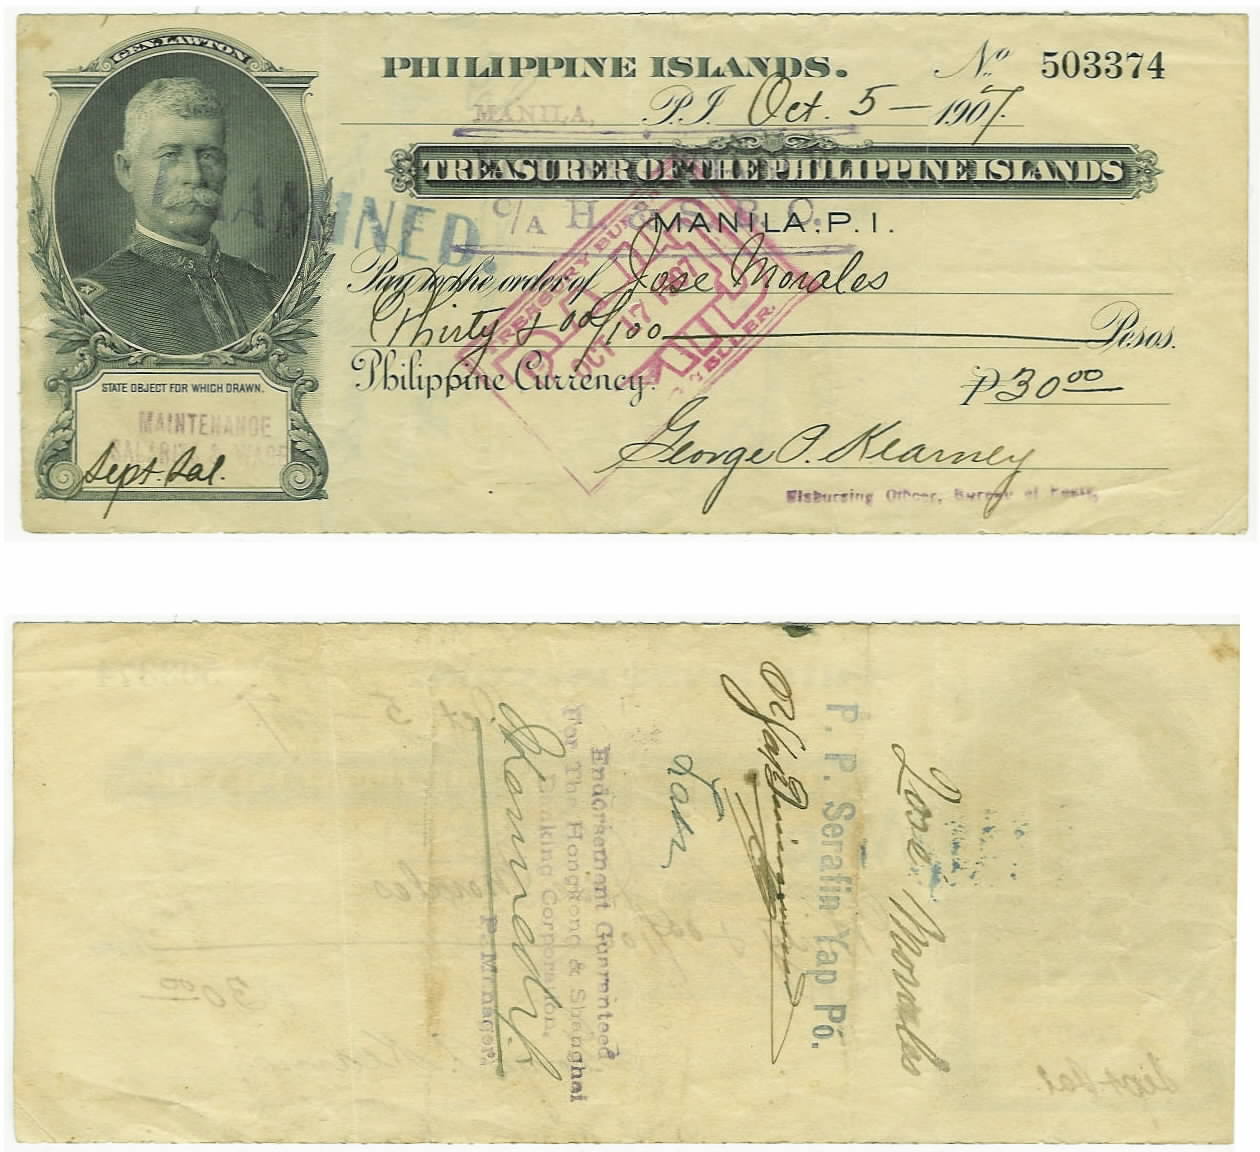 GEN. LAWTON
PHILIPPINE ISLANDS.
No. 503374
MANILA, P.I. Oct. 5 — 1907.
TREASURER OF THE PHILIPPINE ISLANDS
C/A H. & S. B. C.
MANILA, P.I.
EXAMINED.
Pay to the order of Jose Morales
Thirty & 00/100 Pesos.
Philippine Currency.
₱30 00
TREASURY BUREAU
PAID
OCT 17 1907
George P. Kearney
Disbursing Officer, Bureau of Posts.
STATE OBJECT FOR WHICH DRAWN.
MAINTENANCE
SALARIES & WAGES
Sept. Sal.
Jose Morales
P. P. Serafin Yap Po.
Endorsement Guaranteed
For The Hongkong & Shanghai
Banking Corporation,
Manager.